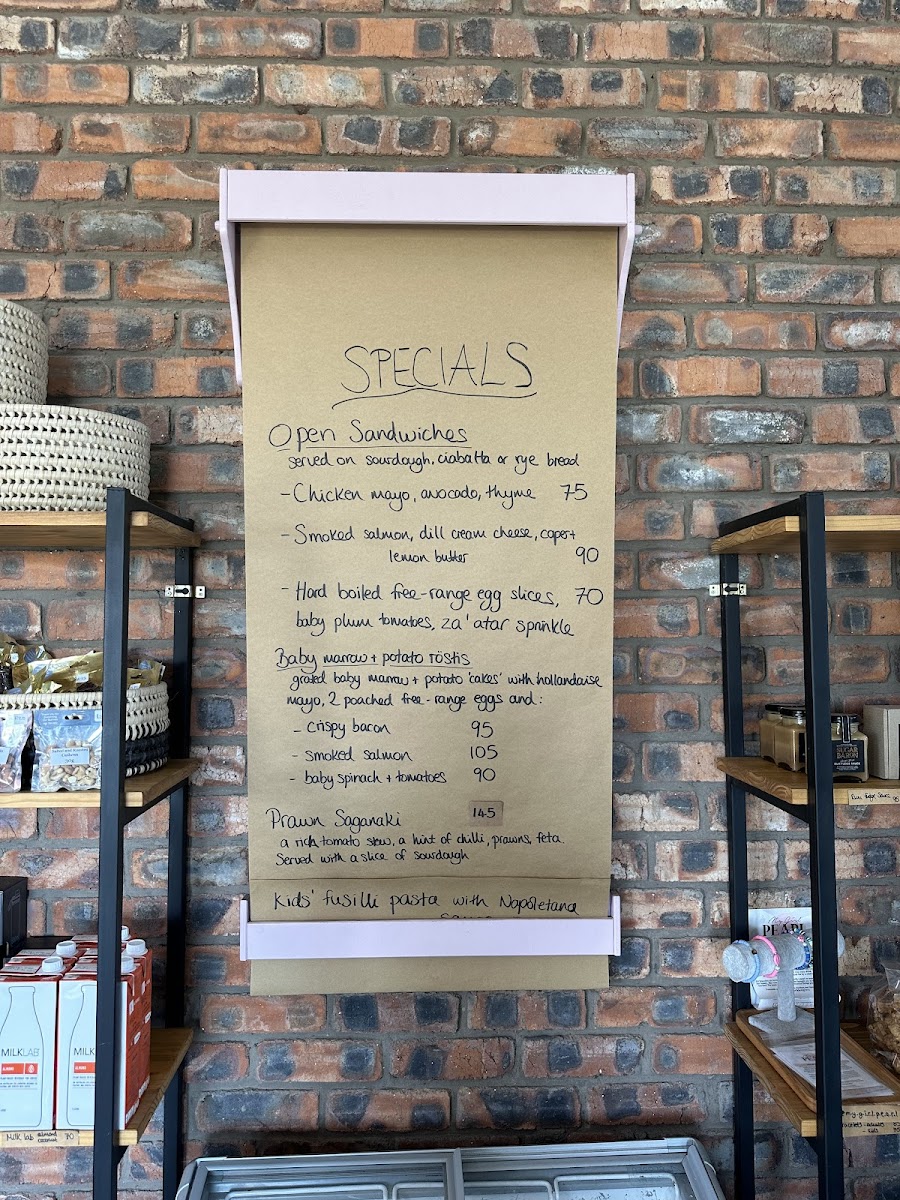 SPECIALS
Open Sandwiches
served on sourdough, ciabatta or rye bread
- Chicken mayo, avocado, thyme 75
- Smoked salmon, dill cream cheese, caper +
lemon butter 90
- Hard boiled free-range egg slices, 70
baby plum tomatoes, za'atar sprinkle
Baby marrow + potato röstis
grated baby marrow + potato 'cakes' with hollandaise
mayo, 2 poached free-range eggs and:
- crispy bacon 95
- smoked salmon 105
- baby spinach + tomatoes 90
Prawn Saganaki 145
a rich tomato stew, a hint of chilli, prawns, feta.
Served with a slice of sourdough
Kids' fusilli pasta with Napoletana
MILKLAB
MILKLAB
Milk lab almond
coconut 70
SUGAR
BARON
PEARL
my.girl.pearl
- kids